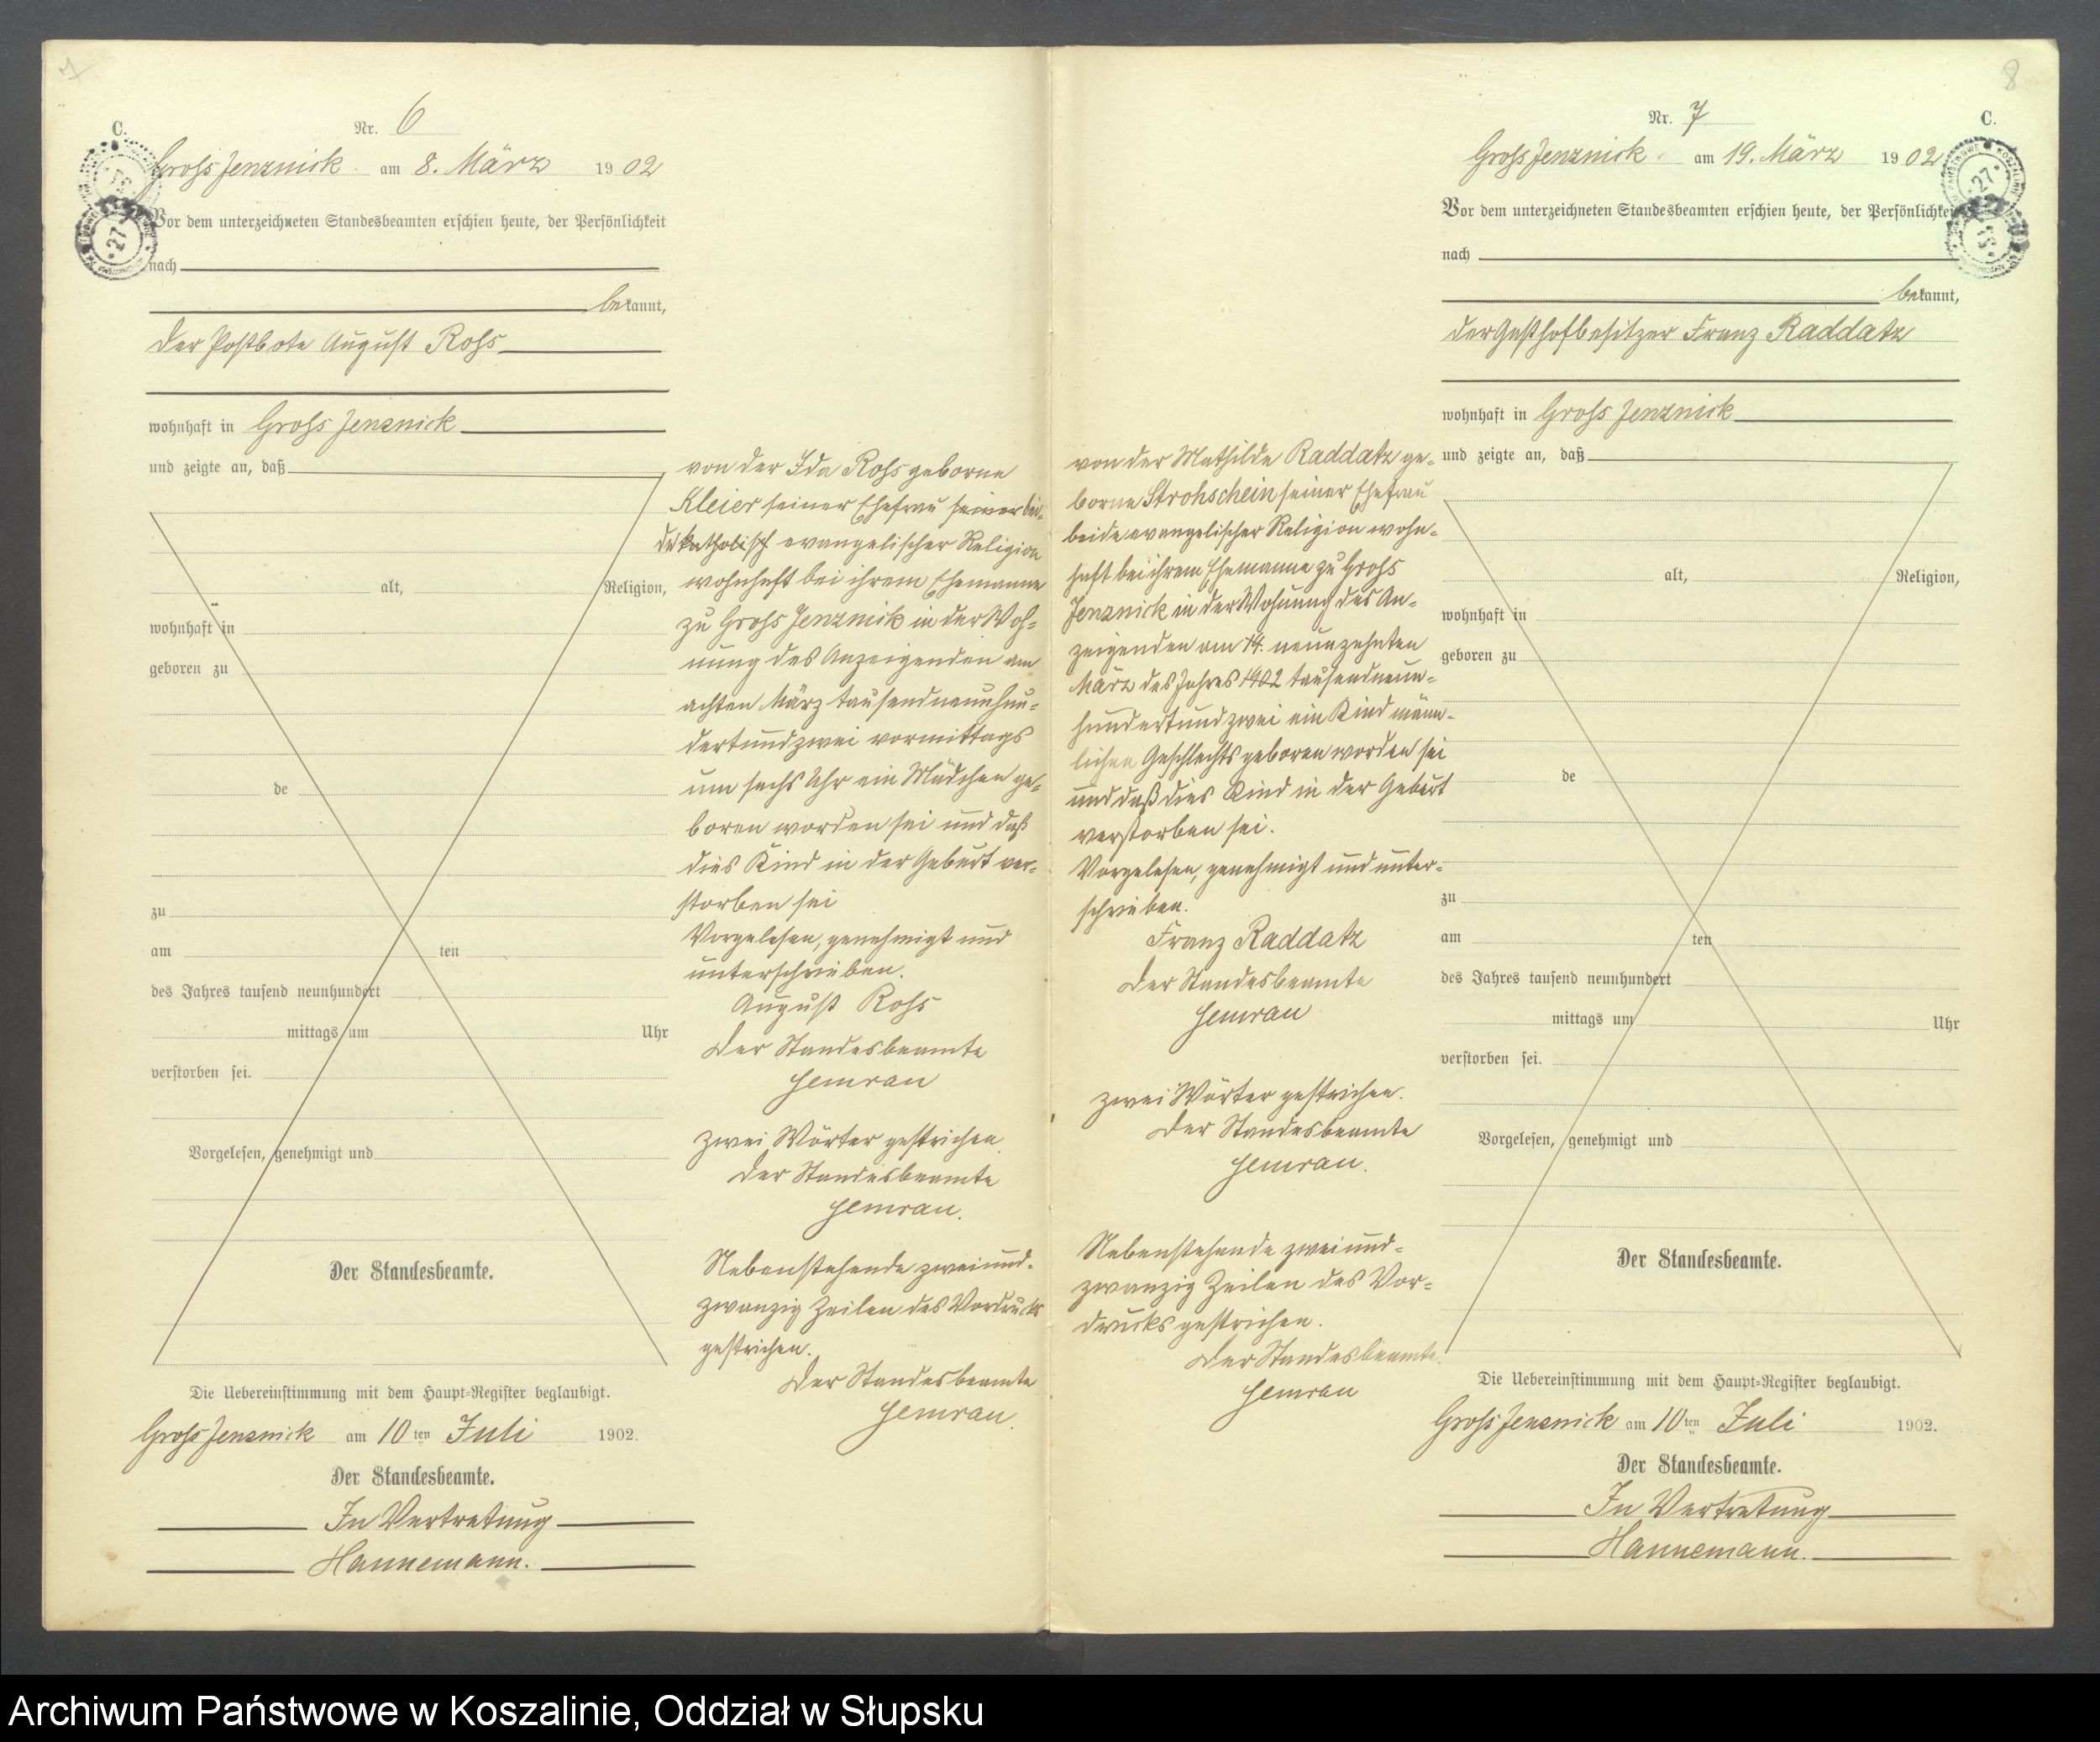 7
C.
Nr. 6
Gross Jenznick am 8. März 1902
Vor dem unterzeichneten Standesbeamten erschien heute, der Persönlichkeit
nach
bekannt,
der Postbote August Rohs
wohnhaft in Gross Jenznick
und zeigte an, daß
alt, Religion,
wohnhaft in
geboren zu
de
zu
am ten
des Jahres tausend neunhundert
mittags um Uhr
verstorben sei.
Vorgelesen, genehmigt und
Der Standesbeamte.
Die Uebereinstimmung mit dem Haupt-Register beglaubigt.
Gross Jenznick am 10ten Juli 1902.
Der Standesbeamte.
In Vertretung
Hannemann.
von der Ida Rohs geborne
Kleier seiner Ehefrau seiner bei-
de katholisch evangelischer Religion
wohnhaft bei ihrem Ehemanne
zu Gross Jenznick in der Woh-
nung des Anzeigenden am
achten März tausendneunhun-
dertundzwei vormittags
um sechs Uhr ein Mädchen ge-
boren worden sei und daß
dies Kind in der Geburt ver-
storben sei
Vorgelesen, genehmigt und
unterschrieben.
August Rohs
Der Standesbeamte
Zwei Wörter gestrichen.
Der Standesbeamte
Nebenstehende zweiund-
zwanzig Zeilen des Vordrucks
gestrichen.
Der Standesbeamte
8
C.
Nr. 7
Gross Jenznick am 19. März 1902
Vor dem unterzeichneten Standesbeamten erschien heute, der Persönlichkeit
nach
bekannt,
der Gasthofbesitzer Franz Raddatz
wohnhaft in Gross Jenznick
und zeigte an, daß
alt, Religion,
wohnhaft in
geboren zu
de
zu
am ten
des Jahres tausend neunhundert
mittags um Uhr
verstorben sei.
Vorgelesen, genehmigt und
Der Standesbeamte.
Die Uebereinstimmung mit dem Haupt-Register beglaubigt.
Gross Jenznick am 10ten Juli 1902.
Der Standesbeamte.
In Vertretung
Hannemann.
von der Mathilde Raddatz ge-
borne Strohschein seiner Ehefrau
beide evangelischer Religion wohn-
haft bei ihrem Ehemanne zu Gross
Jenznick in der Wohnung des An-
zeigenden am 14. neunzehnten
März des Jahres 1902 tausendneun-
hundertundzwei ein Kind männ-
lichen Geschlechts geboren worden sei
und daß dies Kind in der Geburt
verstorben sei.
Vorgelesen, genehmigt und unter-
schrieben.
Franz Raddatz
Der Standesbeamte
Zwei Wörter gestrichen.
Der Standesbeamte
Nebenstehende zweiund-
zwanzig Zeilen des Vor-
drucks gestrichen.
Der Standesbeamte
Archiwum Państwowe w Koszalinie, Oddział w Słupsku